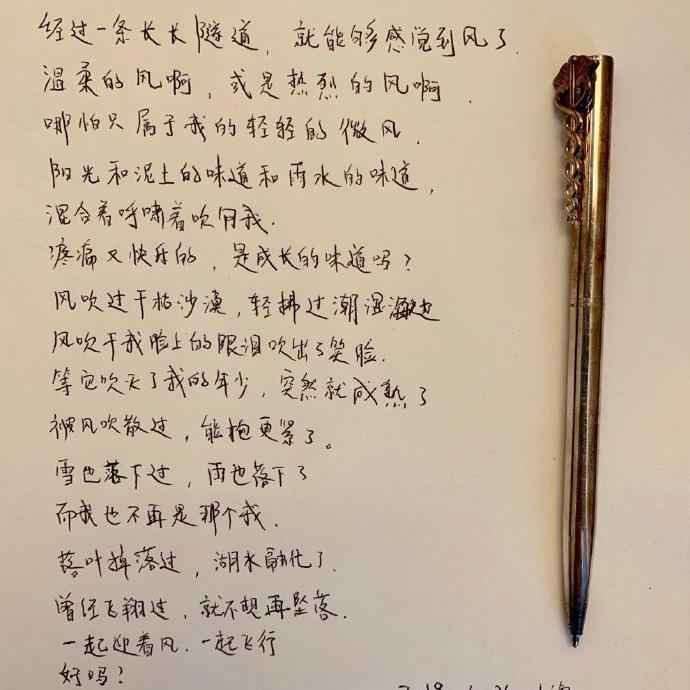 经过一条长长隧道，就能够感觉到风了.
温柔的风啊，或是热烈的风啊.
哪怕只属于我的轻轻的微风.
阳光和泥土的味道和雨水的味道，
混合着呼啸着吹向我.
疼痛又快乐的，是成长的味道吗？
风吹过干枯沙漠，轻拂过潮湿海边
风吹干我脸上的眼泪吹出了笑脸.
等它吹灭了我的年少，突然就成熟了
被风吹散过，能抱更紧了。
雪也落下过，雨也落下了
而我也不再是那个我.
落叶掉落过，湖水融化了.
曾经飞翔过，就不想再坠落.
一起迎着风.一起飞行
好吗？